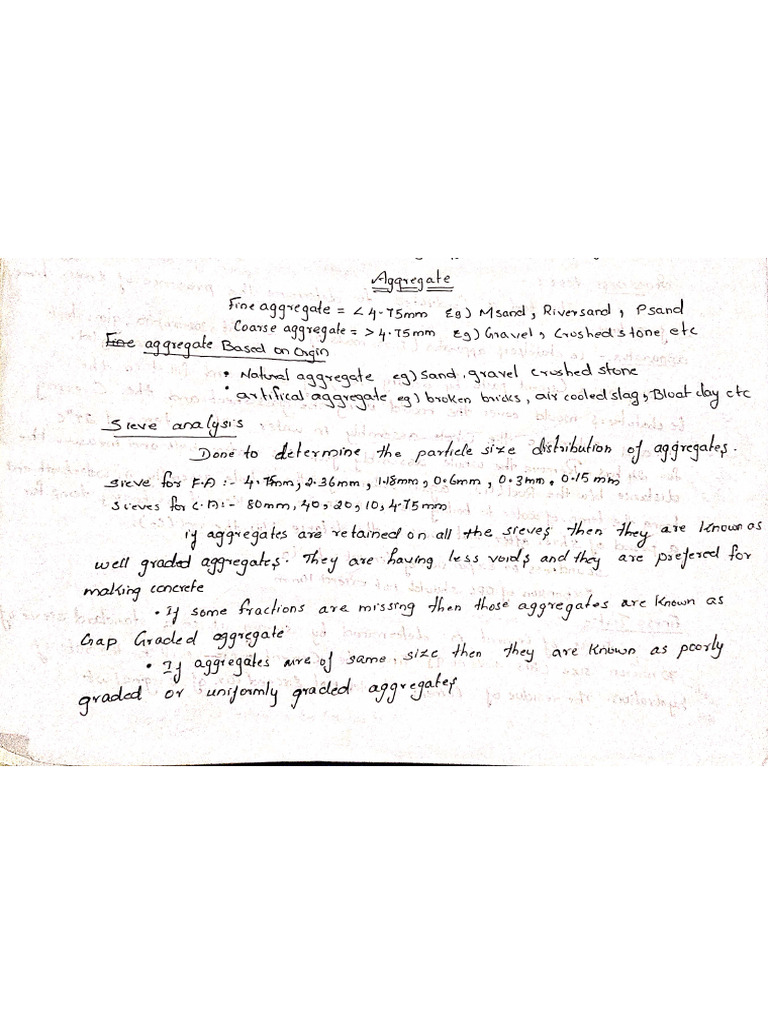 Aggregate
Fine aggregate = < 4.75mm Eg) Msand, Riversand, Psand
Coarse aggregate = > 4.75mm Eg) Gravel, Crushed stone, etc
Fine aggregate Based on Orgin
• Natural aggregate eg) sand, gravel crushed stone
• artifical aggregate eg) broken bricks, air cooled slag, Bloat clay etc
Sieve analysis
Done to determine the particle size distribution of aggregates.
Sieve for F.A :- 4.75mm, 2.36mm, 1.18mm, 0.6mm, 0.3mm, 0.15mm
Sieves for C.A :- 80mm, 40, 20, 10, 4.75mm
if aggregates are retained on all the sieves then they are known as
well graded aggregates. They are having less voids and they are prefered for
making concrete
• If some fractions are missing then those aggregates are known as
Gap Graded aggregate
• If aggregates are of same size then they are known as poorly
graded or uniformly graded aggregates